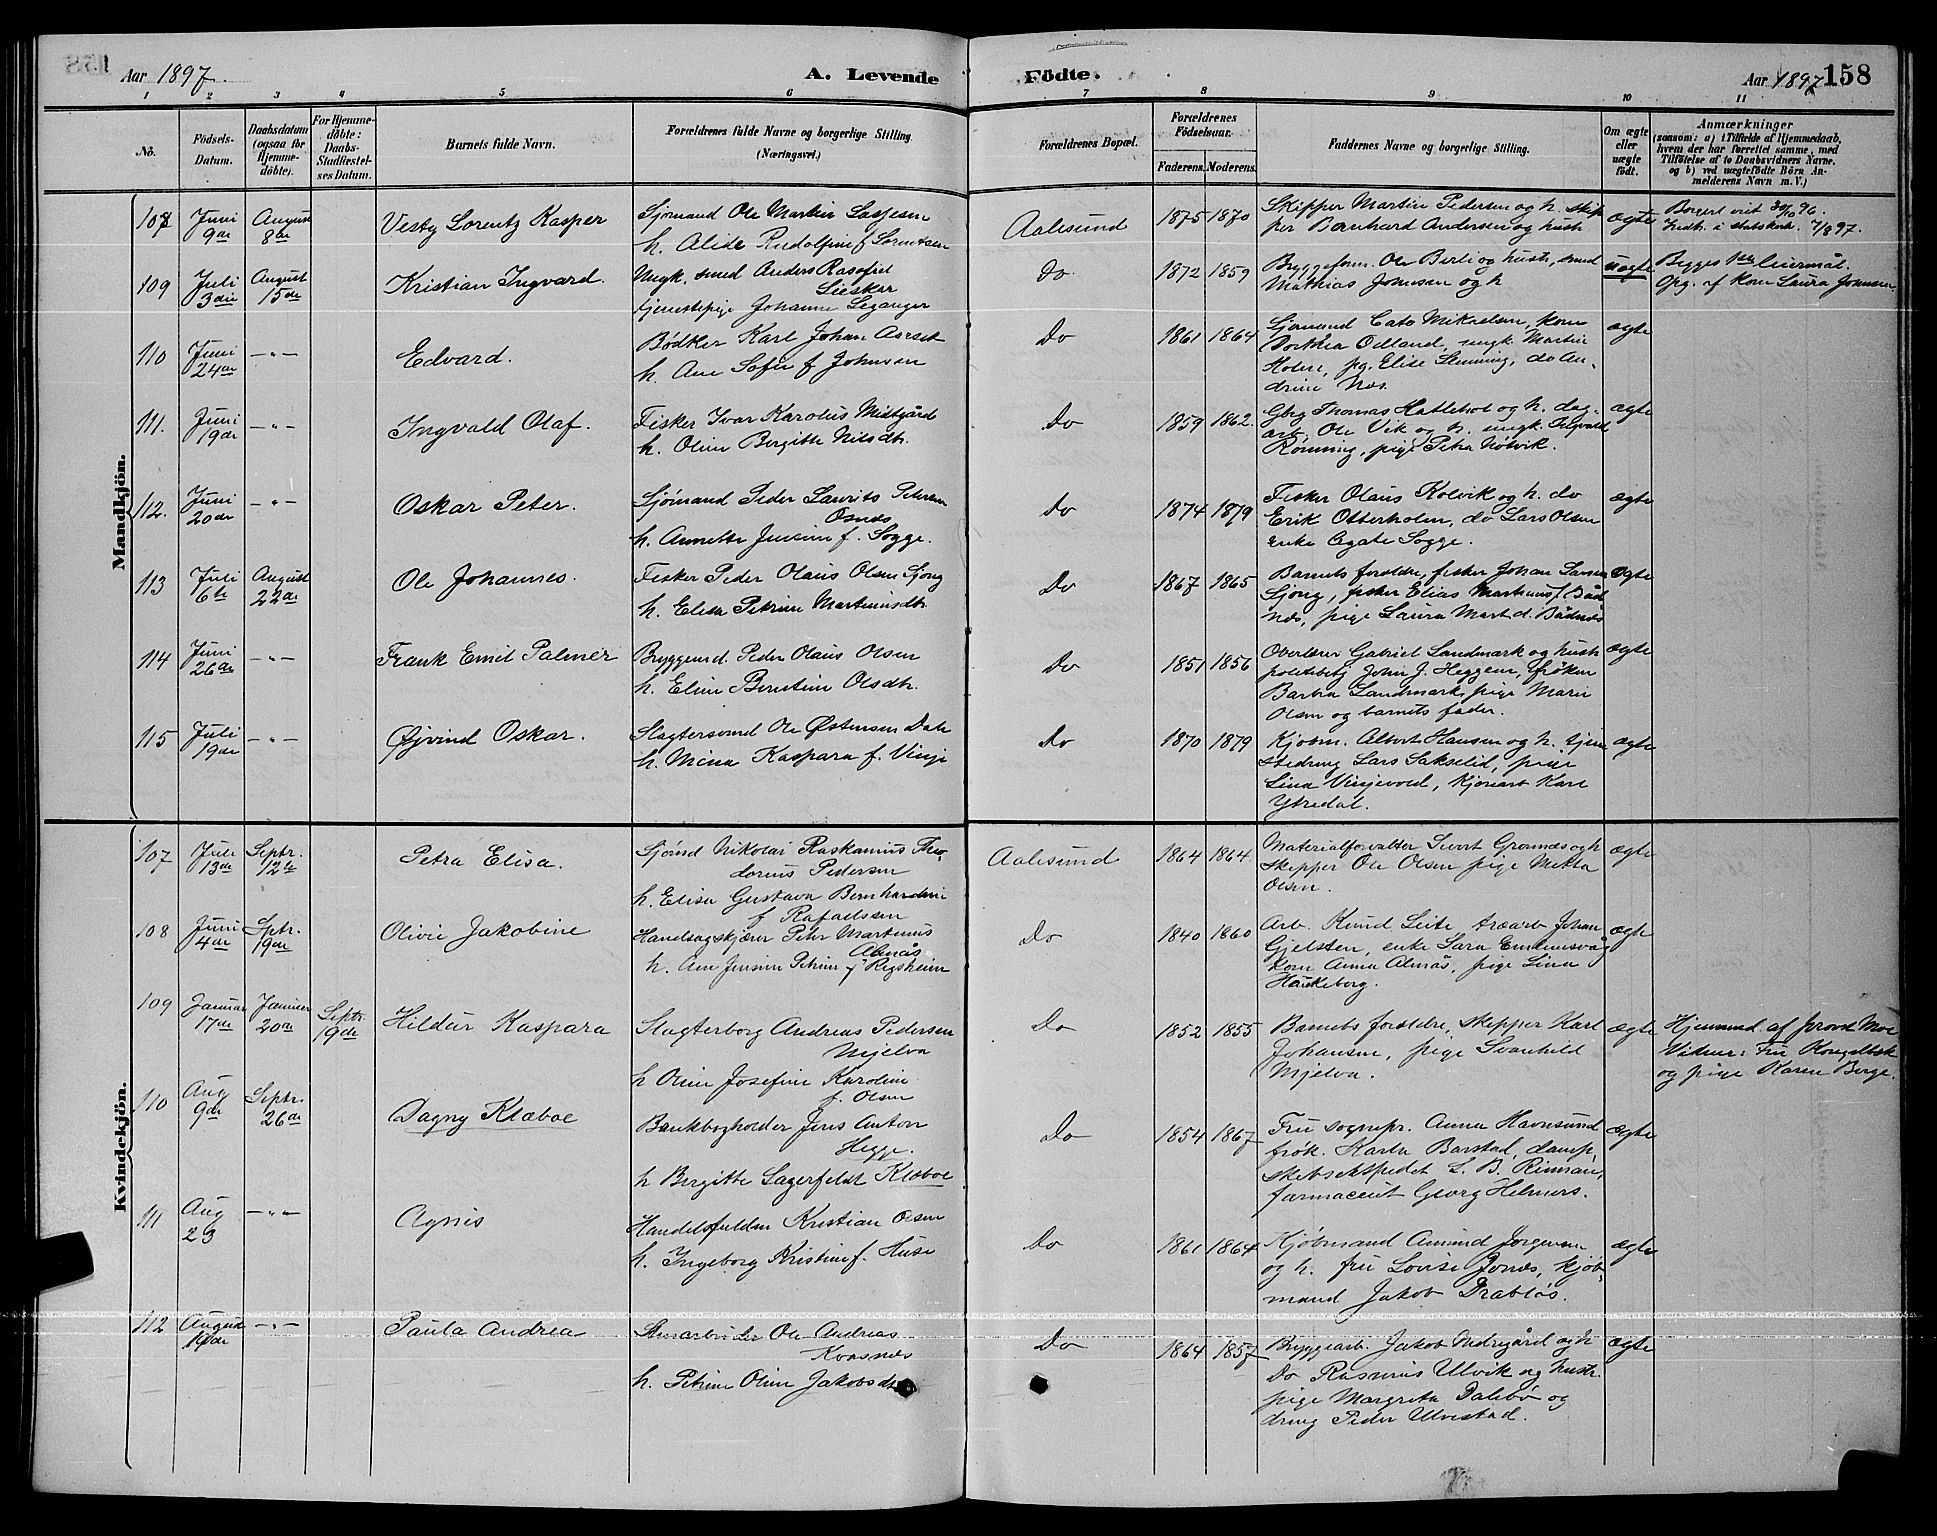 Aar 1897. A. Levende
Födte. Aar 1897 158
1 2 3 4 5 6 7 8 9 10 11
No.
Födsels-
Datum.
Daabsdatum
(ogsaa for
Hjemme-
döbte).
For Hjemme-
döbte:
Daabs-
Stadfæstel-
ses Datum.
Barnets fulde Navn.
Forældrenes fulde Navne og borgerlige Stilling.
(Næringsvei.)
Forældrenes Bopæl.
Forældrenes
Födselsaar.
Faderens. Moderens.
Faddernes Navne og borgerlige Stilling.
Om ægte
eller
uægte
födt.
Anmærkninger
(saasom: a) i Tilfælde af Hjemmedaab,
hvem der har forrettet samme, med
Tilföielse af to Daabsvidners Navne.
og b) ved uægtefödte Börn An-
melderens Navn m. V.)
Mandkjön.
108 Juni 9de August 8de Vesty Lorentz Kasper
Sjömand Ole Martin
h. Alide Rudolfine f Sorentsen
Aalesund 1875 1870
Skipper Martin Pedersen og h. skip
per Bernhard Andersen og hustr
ægte
Borgerl. viet 30/10 96.
Indtr. i statskirk. 7/8 97.
109 Juli 3die August 15de Kristian Ingvard.
Ungk. smed Anders Rasofiel
Lieskar
tjenestepige Johanne Leganger
Do 1872 1859
Bryggeform. Ole Berli og hustr, smed
Mathias Johnsen og h
uægte
Begges 1ste leiermål.
Opg. af kone Laura Johnsen
110 Juni 24de -"- Edvard.
Bødker Karl Johan Aarset
h. Ane Sofie f Johnsen
Do 1861 1864
Sjømand Cato Mikaelsen, kone
Dorthea Odland, ungk Martin
Holen, pg. Elise Slenning, do An-
drine Næs.
ægte
111. Juni 19de -"- Ingvald Olaf.
Fisker Ivar Karolus Midtgård
h. Oline Bergitte Nilsdtr.
Do 1859 1862.
Gbrg Thomas Hatlehol og h. dag-
arb. Ole Vik og h. ungk. Ingvald
Rönning, pige Petra Nötvik.
ægte
112. Juni 20de -"- Oskar Peter.
Sjömand Peder Laurits Petersen
Osnæs
h. Annette Jensine f. Sogge.
Do 1874 1879
Fisker Olaus Kolvik og h. do
Erik Otterholm, do Lars Olsen
enke Agate Sogge.
ægte
113 Juli 6te August 22de Ole Johannes.
Fisker Peder Olaus Olsen Sjong
h. Elisa Petrine Martinusdtr
Do 1867 1865
Barnets forældre, fisker Johan Larsen
Sjong, fisker Elias Martinus f. Båd
næs, pige Laura Mart.d. Bådnæs
ægte
114 Juni 26de -"- Frank Emil Palmer
Bryggemd. Peder Olaus Olsen
h. Eline Berntine Olsdtr.
Do 1851 1856
Overlærer Gabriel Landmark og hustr
politibetj John J. Heggem, frøken
Barbra Landmark, pige Marie
Olsen og barnets fader.
ægte
115 Juli 19de -"- Øjvind Oskar.
Slagtersvend Ole Østensen Dale
h. Mina Kaspara f. Vinje
Do 1870 1879
Kjøbm. Albert Hansen og h. tjene
stedreng Lars Sakselid, pige
Lina Vinjevold, Kjørearb Karl
Ytredal.
ægte
Kvindekjön.
107 Juli 13de Septr. 12te Petra Elisa.
Sjömd Nikolai Raskanius Theo-
dorius Pedersen
h. Elisa Gustava Bernhardine
f Rafaelsen
Aalesund 1864 1864.
Materialforvalter Sivert Grønnæs og h
Skipper Ole Olsen pige Mekta
Olsen.
ægte
108 Juni 4de Sptr. 19de Olivie Jakobine
Handsagskjærer Petr Martinus
Alenås
h. Ane Jensine Petrine f Rigsheim
Do 1840 1860
Arb. Knud Leite, træarb Johan
Gjelsten, enke Sara Emlemsvåg
kone Anna Almås, pige Lina
Haukeberg.
ægte
109 Januar 17de Januar 20de Septr 19de Hildur Kaspara
Slagterborg Andreas Pedersen
Mjelva
h Oline Josefine Karoline
f. Olsen
Do 1852 1855
Barnets forældre, Skipper Karl
Johansen, pige Svanhild
Mjelva.
ægte
Hjemmed af provst Moe
Vidner: Fru Kongelbæk
og pige Karen Berge.
110 Aug 9de Septr. 26de Dagny Klæboe
Bankbogholder Jens Anton
Hegge.
h Bergitte Lagerfeldt Klæboe
Do 1854 1867
Fru sognepr. Anna Havnsund
frøk. Karla Barstad, damp-
skibsekspedit L. B. Rimsau,
farmaceut Georg Helmers.
ægte
111 Aug 23 -"- Agnes
Handelsfuldm Kristian Olsen
h. Ingeborg Kristine f. Huse
Do 1861 1864
Kjøbmand Amund Jørgensen
og h. fru Lovise Jonæs, kjøb-
mand Jakob Drabløs.
ægte
112 August 11te -"- Paula Andrea
Stenarbeider Ole Andreas
Kvasnæs
h. Petrine Oline Jakobsdtr
Do 1864 1857
Bryggearb. Jakob Nedregård og h
Do Rasmus Ulvik og hustr.
pige Margreta Dalebø og
dreng Peder Ulvestad.
ægte